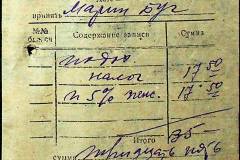 принять Марии Буг
№№ Содержание записи Сумма
подох
налог 17-50
п 5% пенс. 17-50
Итого 35
сумма тридцать пять